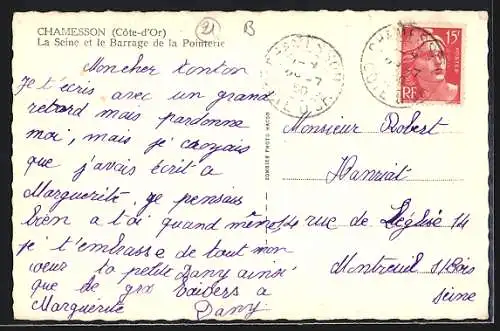 CHAMESSON (Côte-d'Or)
La Seine et le Barrage de la Pointerie
21
B
Mon cher tonton
Je t'écris avec un grand
retard mais pardonne
moi, mais je croyais
que j'avais écrit a
Marguerite, je pensais
bien a toi quand même
je t'embrasse de tout mon
coeur ta petite Dany ainsi
que de gros baisers a
Marguerite
Dany
COMBIER PHOTO MACON
CHAMESSON
50
CÔTE D'OR
15F
POSTES
RF
Monsieur Robert
14 rue de l'église 14
Montreuil s/Bois
Seine